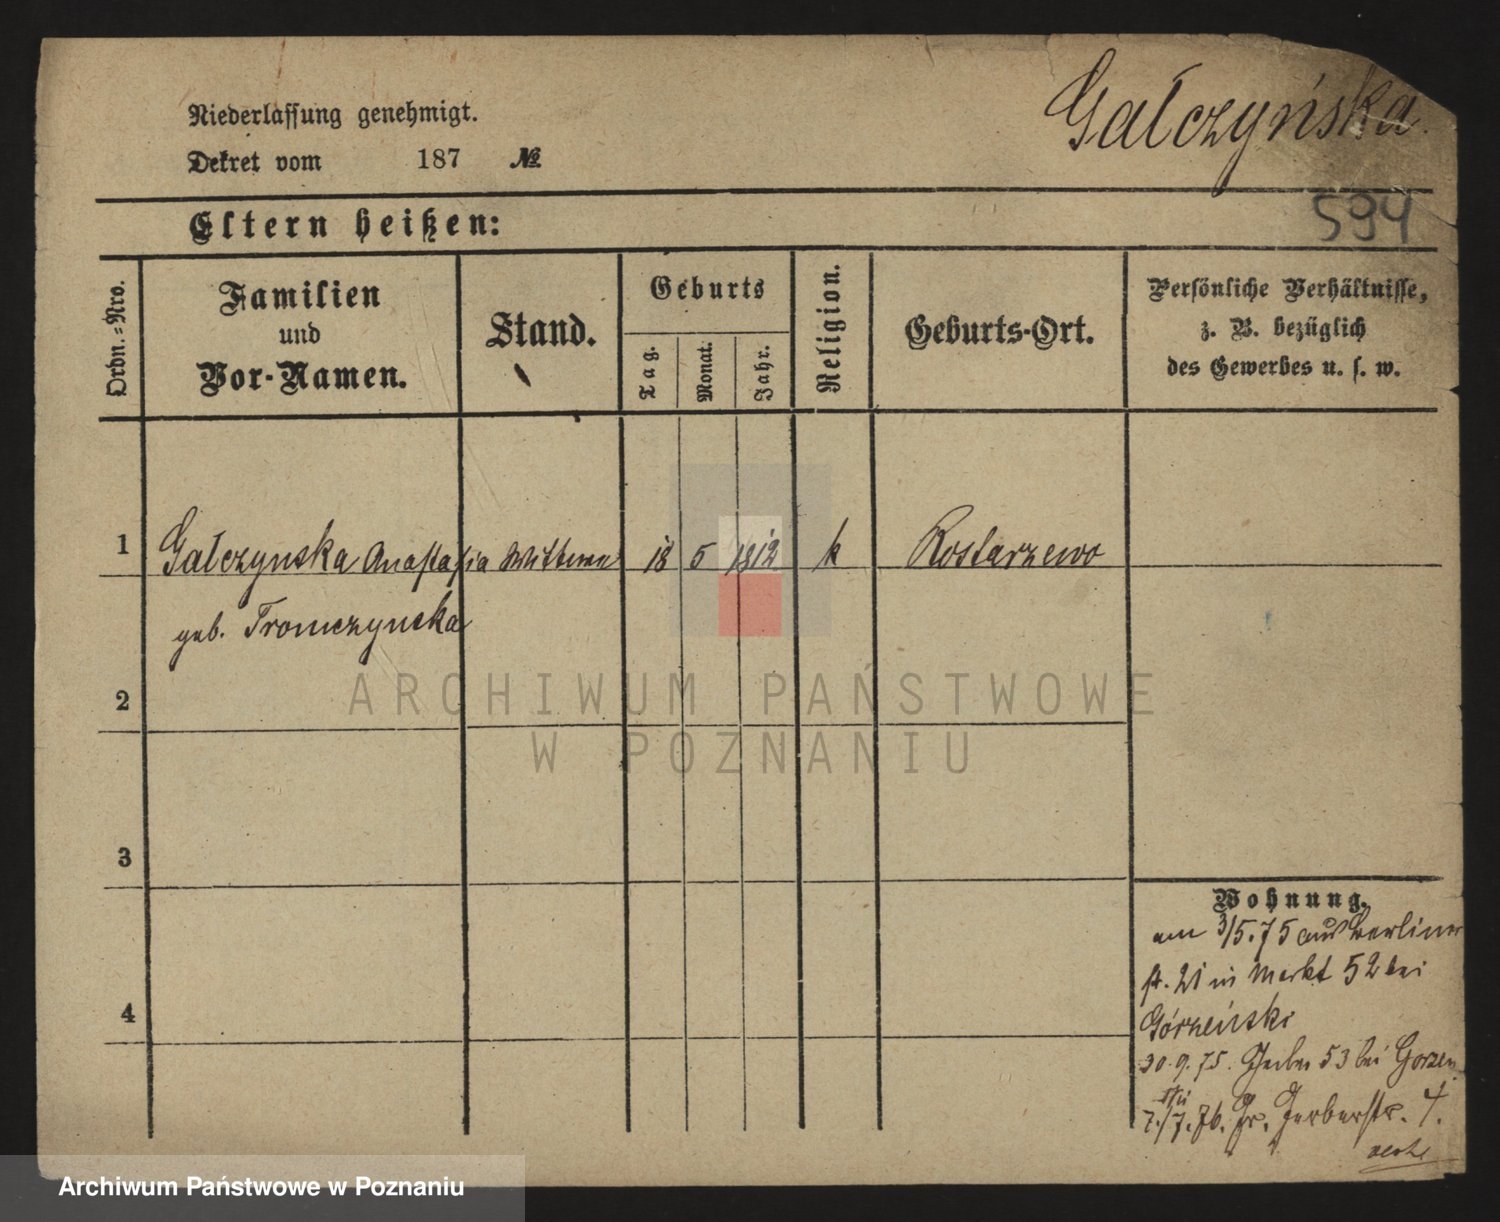 Gałczyńska.
Niederlassung genehmigt.
Dekret vom 187 №
594
Eltern heißen:
Ordn.=Nro.
Familien
und
Vor-Namen.
Stand.
Geburts
Tag.
Monat.
Jahr.
Religion.
Geburts-Ort.
Persönliche Verhältnisse,
z. B. bezüglich
des Gewerbes u. s. w.
1 Gałczynska Anastasia Wittwe 18 5 1812 k Rostarzewo
geb. Tromczynska
2
3
4
Wohnung.
am 3/5.75 aus Berliner
st. 21 in Markt 52 bei
Górzeński
30.9.75. 53 bei Gorzen
ski
7./7.76. Gr. Gerberstr. 4.
ARCHIWUM PAŃSTWOWE
W POZNANIU
Archiwum Państwowe w Poznaniu